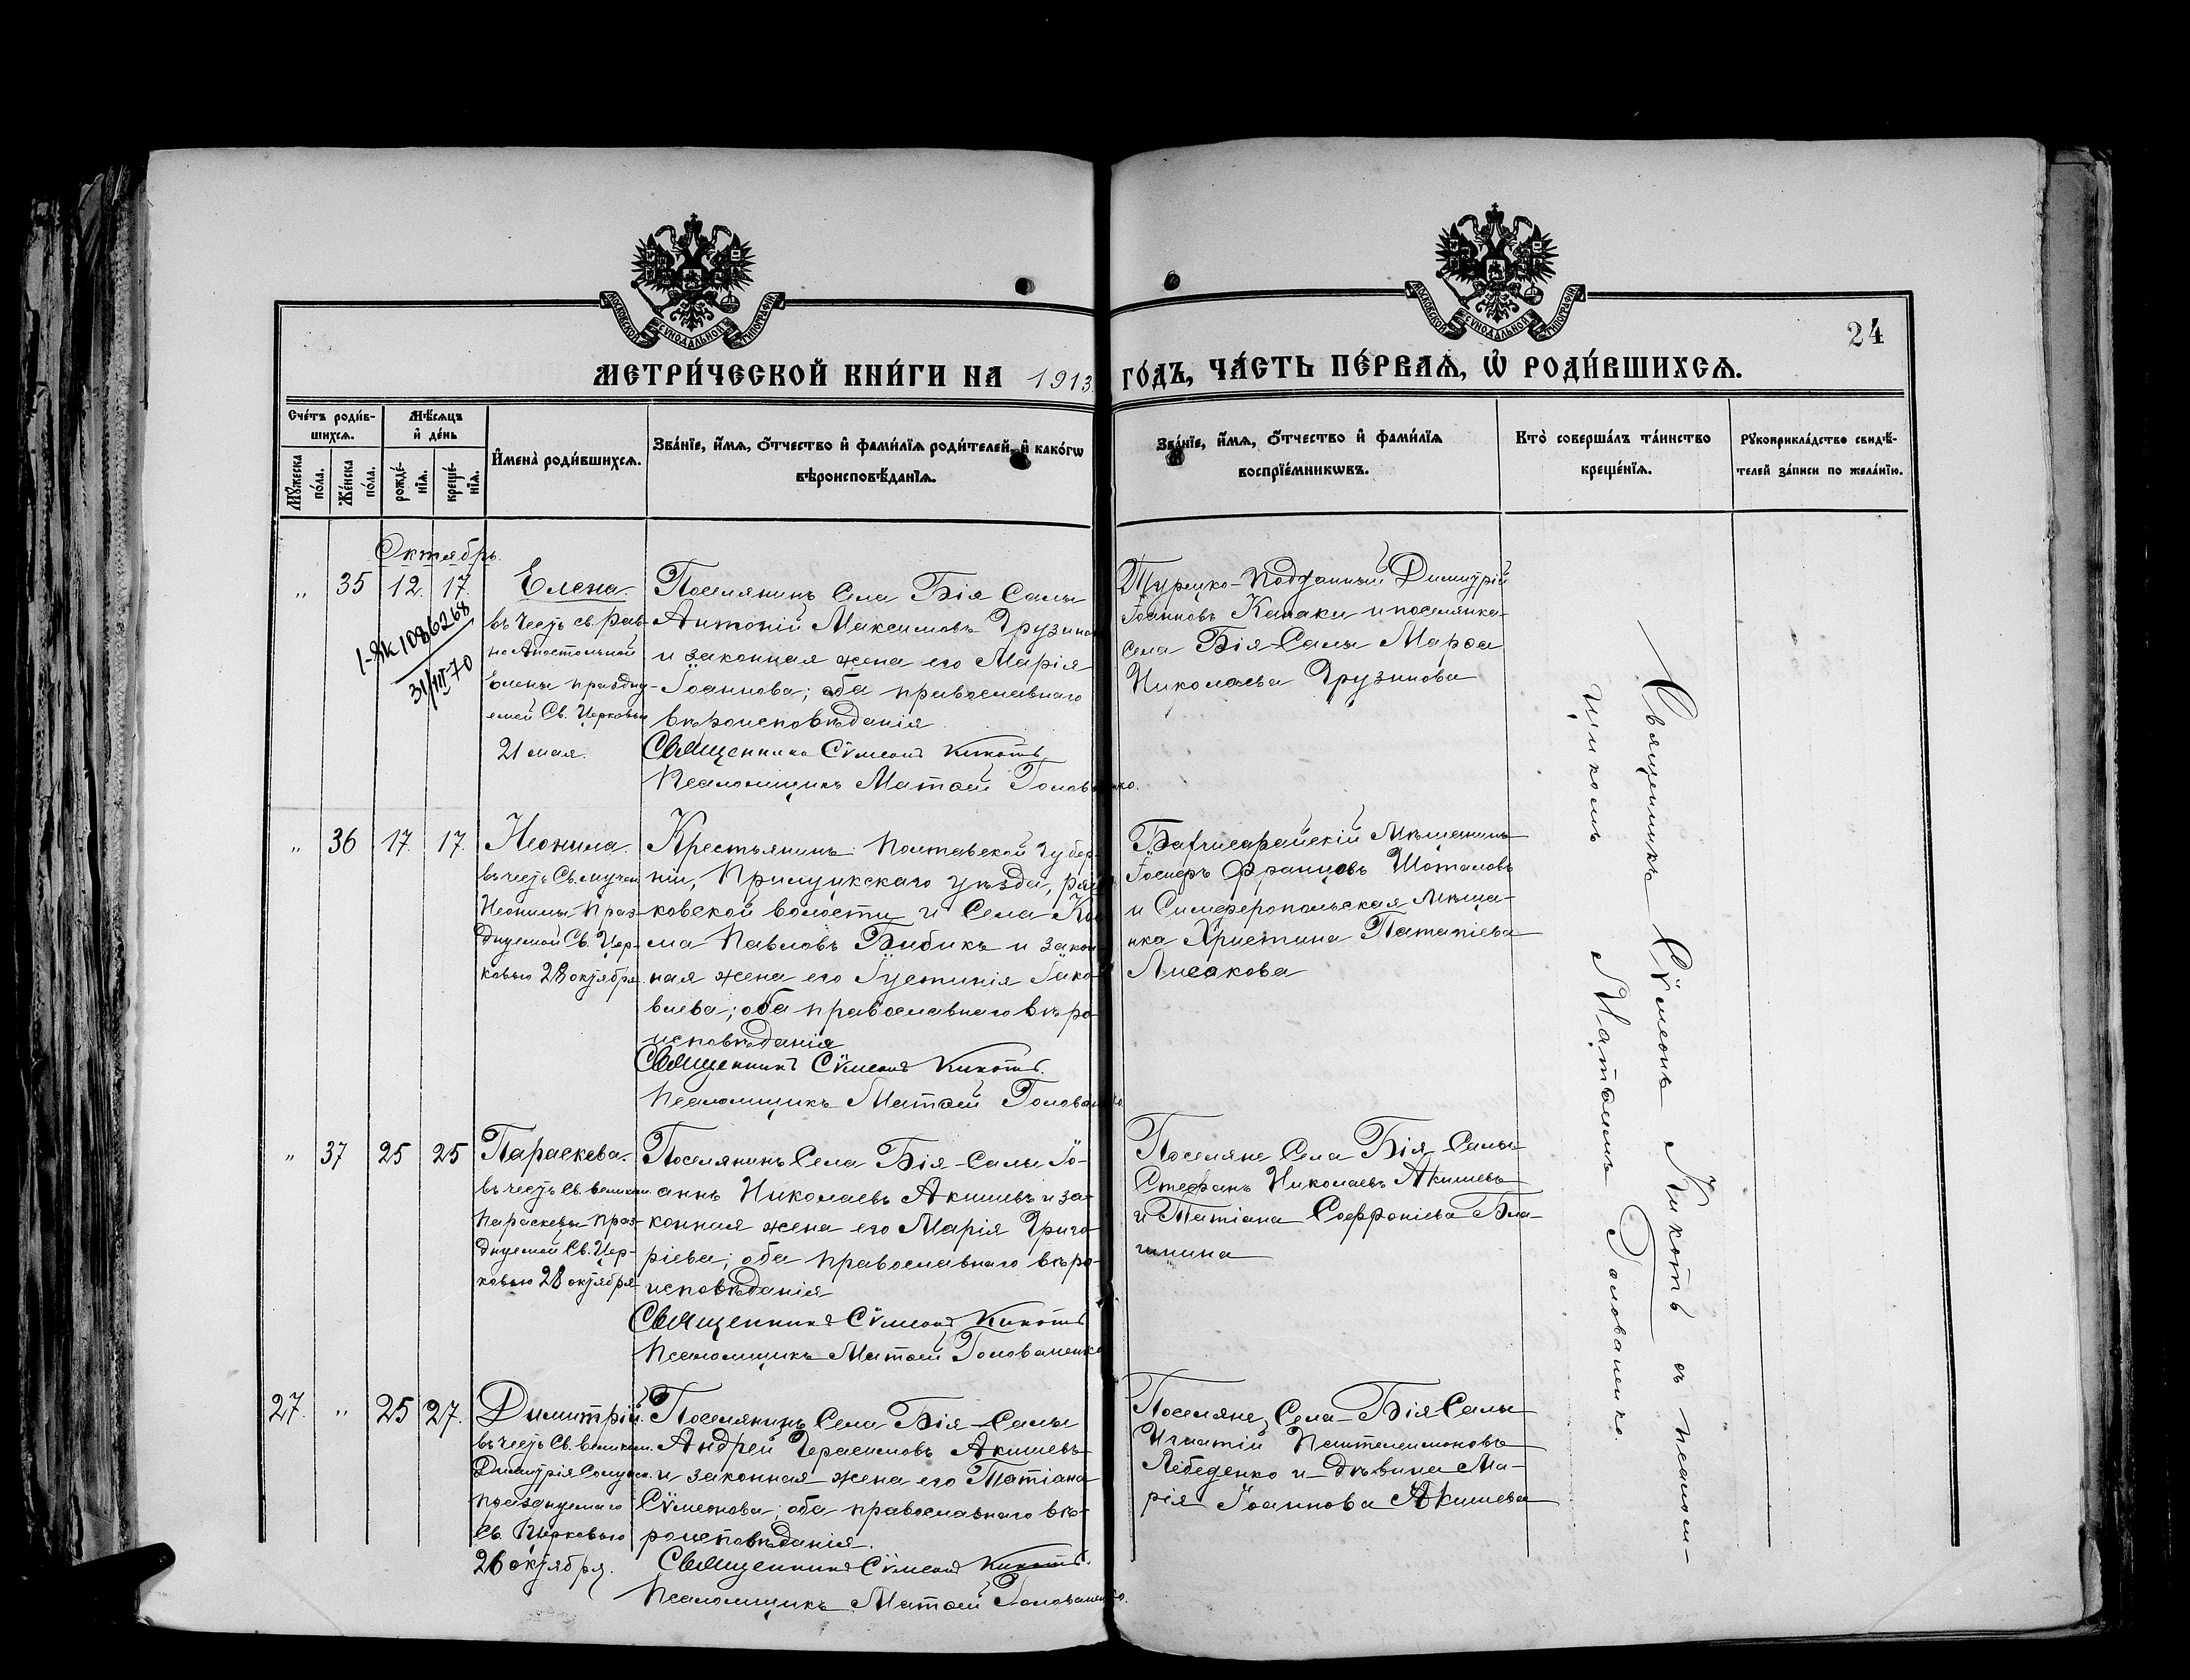 МОСКОВСКОЙ СѴНОДАЛЬНОЙ ТИПОГРАФІИ
МОСКОВСКОЙ СѴНОДАЛЬНОЙ ТИПОГРАФІИ
24
МЕТРИ́ЧЕСКОЙ КНИ́ГИ НА 1913
ГО́ДЪ, ЧА́СТЬ ПЕ́РВАѦ, Ѡ҆ РОДИ́ВШИХСѦ.
Сче́тъ роди́в-
шихсѧ.
Мѣ́сѧцъ
и҆ де́нь
Мꙋ́жеска по́ла.
Же́нска по́ла.
рожде́-
нїѧ.
креще́-
нїѧ.
И҆мена̀ роди́вшихсѧ.
Зва́нїе, и҆́мѧ, ѻ҆́тчество и҆ фами́лїѧ роди́телей, и҆ како́гѡ
вѣроисповѣ́данїѧ.
Зва́нїе, и҆́мѧ, ѻ҆́тчество и҆ фами́лїѧ
воспрїе́мникѡвъ.
Кто̀ соверша́лъ та́инство
креще́нїѧ.
Рꙋкоприкла́дство свидѣ́-
телей за́писи по жела́нїю.
Октябрь.
„ 35 12. 17. Елена.
въ честь св. рав-
ноапостольной
Елены праздну-
емой Св. Церковью
21 мая.
31/III-70
Поселянинъ Села Бія Салы
Антоній Максимовъ Грузинов
и законная жена его Марія
Іоаннова; оба православнаго
вѣроисповѣданія
Священникъ Сѵмеонъ Кикоть
Псаломщикъ Матѳей Голованенко.
Турецко-подданный Димитрій
Іоанновъ Капаки и поселянка
села Бія-Салы Марѳа
Николаева Грузинова
„ 36 17. 17. Неонила.
въ честь Св. мучен.
Неонилы праз-
днуемой Св. Цер-
ковью 28 октября.
Крестьянинъ Полтавской губер-
ніи, Прилукскаго уѣзда,
ковской волости и Села
ма Павловъ Бибикъ и закон-
ная жена его Іустинія Іако-
влева; оба православнаго вѣро-
исповѣданія
Священникъ Сѵмеонъ Кикоть.
Псаломщикъ Матѳей Голованенко
Бахчисарайскій Мѣщанинъ
Іосифъ Францовъ Шоталовъ
и Симферопольская Мѣща-
нка Христина Патапіева
Лисакова
„ 37 25 25 Параскева.
въ честь Св. великом.
Параскевы праз-
днуемой Св. Цер-
ковью 28 октября
Поселянинъ Села Бія-Салы Іо-
аннъ Николаевъ Акишевъ и за-
конная жена его Марія Григо-
ріева; оба православнаго вѣро-
исповѣданія
Священникъ Сѵмеонъ Кикоть
Псаломщикъ Матѳей Голованенко
Поселяне Села Бія-Салы
Стефанъ Николаевъ Акишевъ
и Татіана Софроніева
27. „ 25 27. Димитрій.
въ честь Св. великом.
Димитрія Солунск.
празднуемаго
Св. Церковью
26 октября.
Поселянинъ Села Бія-Салы
Андрей Герасимовъ Акишевъ
и законная жена его Татіана
Сѵмеонова; оба православнаго вѣ-
роисповѣданія.
Священникъ Сѵмеонъ Кикоть.
Псаломщикъ Матѳей Голованенко.
Поселяне Села Бія Салы
Игнатій Пантелеимоновъ
Лебеденко и дѣвица Ма-
рія Іоаннова Акишева
Священникъ Сѵмеонъ Кикоть съ псалом-
щикомъ Матѳеемъ Голованенко.